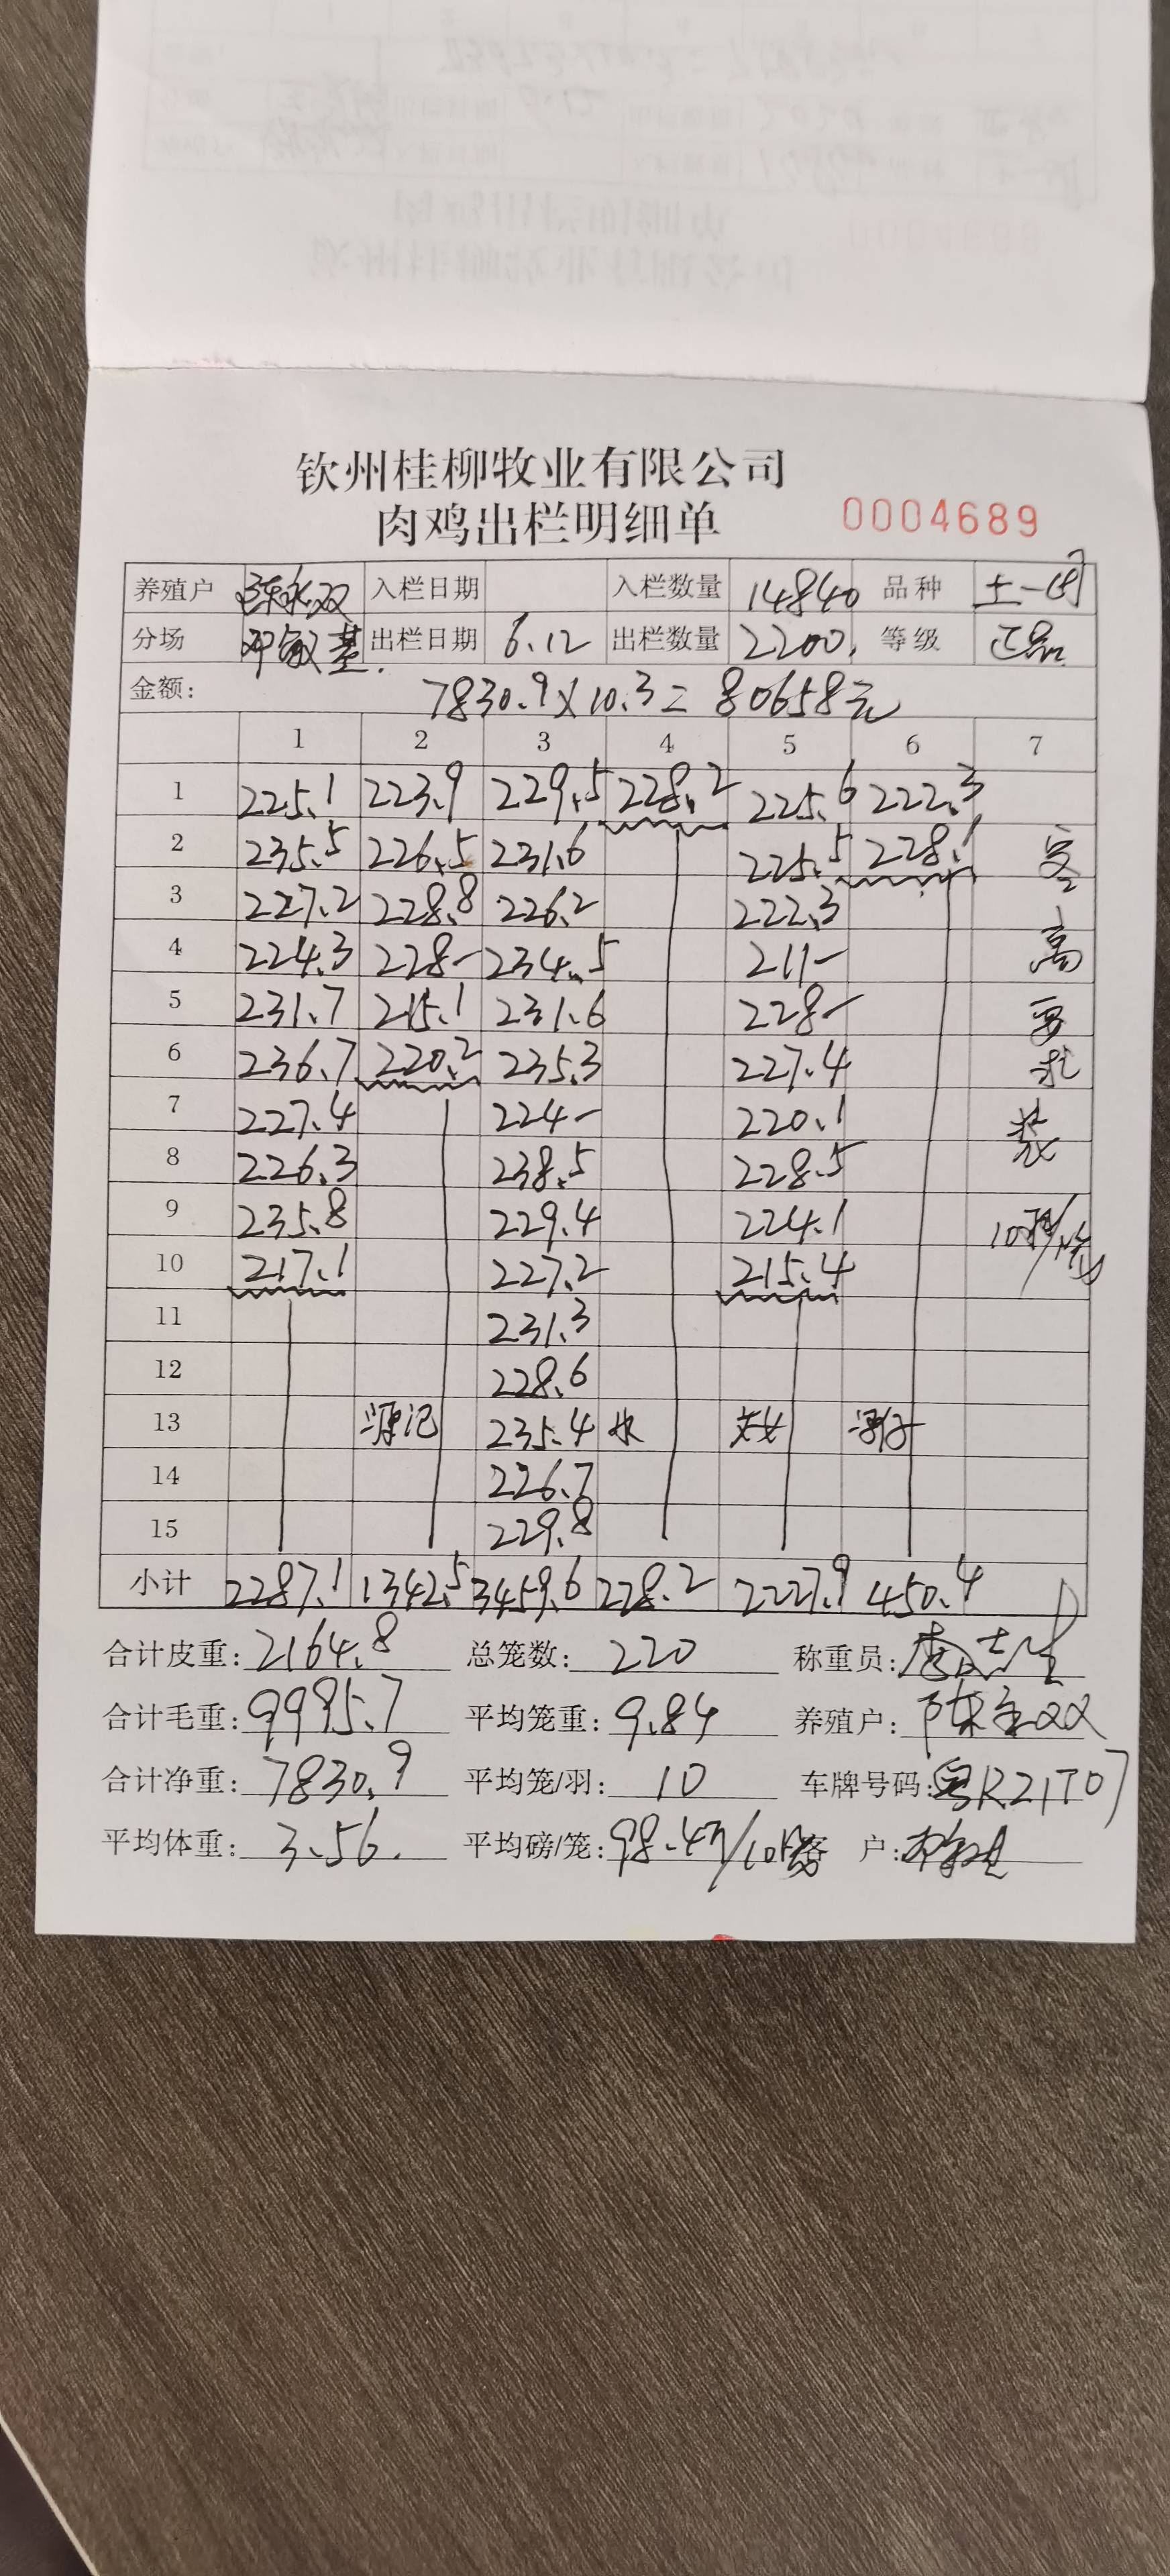 钦州桂柳牧业有限公司
肉鸡出栏明细单 0004689
养殖户 入栏日期 入栏数量 14840 品种 土一
分场 邓敏基 出栏日期 6.12 出栏数量 2200 等级 正品
金额: 7830.9×10.3=80658元
1 2 3 4 5 6 7
1 225.1 223.9 229.5 228.2 225.6 222.3
2 235.5 226.5 231.6 225.5 228.1 客
3 227.2 228.8 226.2 222.3
4 224.3 228- 234.5 211- 高
5 231.7 215.1 231.6 228- 要
6 236.7 220.2 235.3 227.4 求
7 227.4 224- 220.1 装
8 226.3 238.5 228.5
9 235.8 229.4 224.1
10 217.1 227.2 215.4
11 231.3
12 228.6
13 源记 235.4 水
14 226.7
15 229.8
小计 2287.1 1342.5 3459.6 228.2 2227.9 450.4
合计皮重: 2164.8 总笼数: 220 称重员:
合计毛重: 9995.7 平均笼重: 9.84 养殖户:
合计净重: 7830.9 平均笼/羽: 10 车牌号码: 粤R21T07
平均体重: 3.56. 平均磅/笼: 98.4 客户: